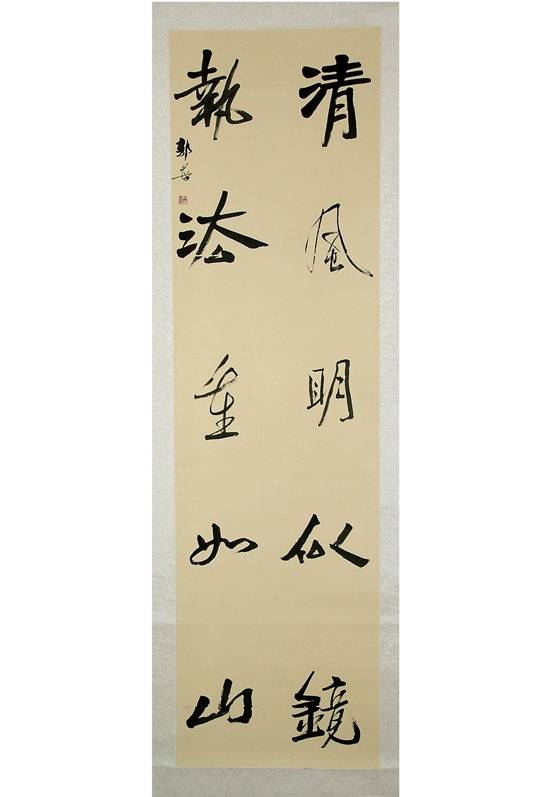 清風明似鏡
執法重如山